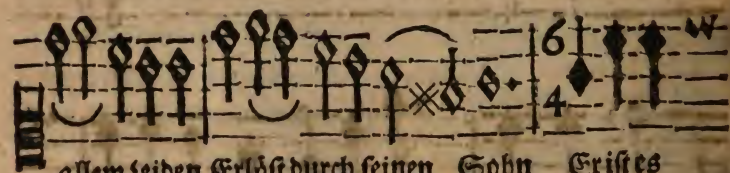 6
4
allem Leiden Erlöst durch seinen Sohn Er ist es